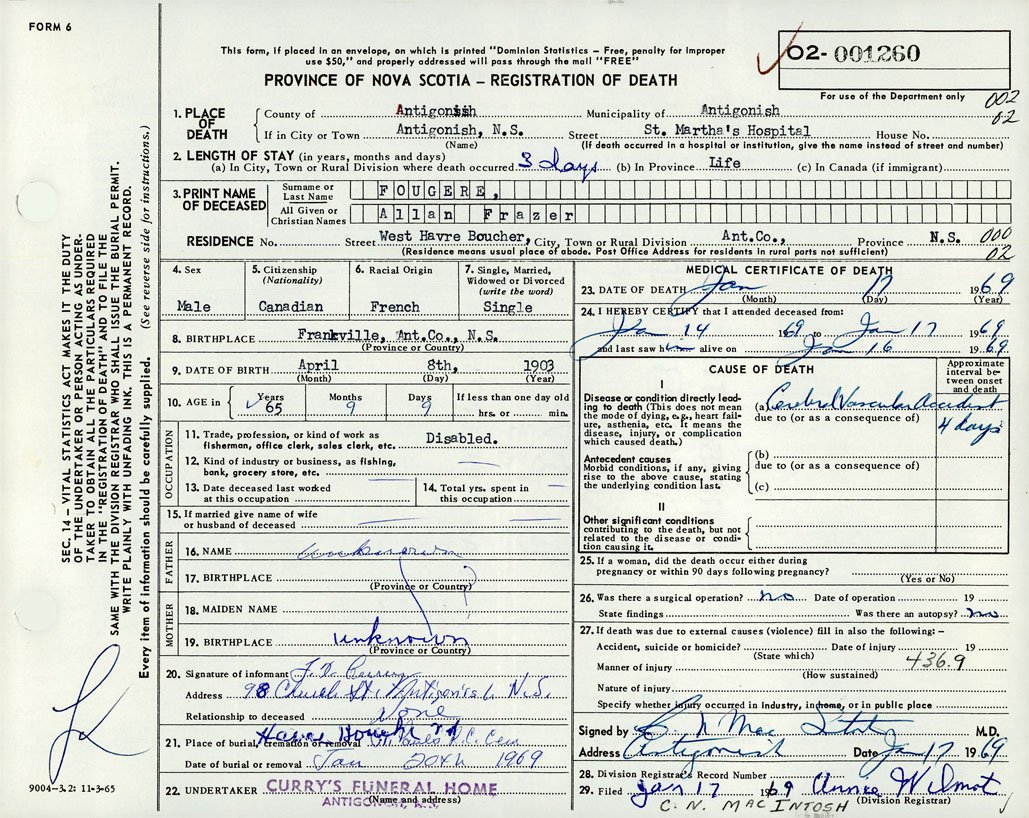 FORM 6
This form, if placed in an envelope, on which is printed "Dominion Statistics – Free, penalty for improper
use $50," and properly addressed will pass through the mail "FREE"
PROVINCE OF NOVA SCOTIA – REGISTRATION OF DEATH
02- 001260
For use of the Department only
002
02
1. PLACE OF DEATH
County of Antigonish Municipality of Antigonish
If in City or Town Antigonish, N.S. Street St. Martha's Hospital House No.
(Name) (If death occurred in a hospital or institution, give the name instead of street and number)
2. LENGTH OF STAY (in years, months and days)
(a) In City, Town or Rural Division where death occurred 3 days (b) In Province Life (c) In Canada (if immigrant)
3. PRINT NAME OF DECEASED
Surname or Last Name FOUGERE,
All Given or Christian Names Allan Frazer
RESIDENCE No. Street West Havre Boucher, City, Town or Rural Division Ant.Co., Province N.S. 000
(Residence means usual place of abode. Post Office Address for residents in rural parts not sufficient) 02
4. Sex
Male
5. Citizenship (Nationality)
Canadian
6. Racial Origin
French
7. Single, Married, Widowed or Divorced (write the word)
Single
8. BIRTHPLACE Frankville, Ant.Co., N.S.
(Province or Country)
9. DATE OF BIRTH April 8th, 1903
(Month) (Day) (Year)
10. AGE in Years 65 Months 9 Days 9 If less than one day old hrs. or min.
OCCUPATION
11. Trade, profession, or kind of work as
fisherman, office clerk, sales clerk, etc. Disabled.
12. Kind of industry or business, as fishing,
bank, grocery store, etc.
13. Date deceased last worked
at this occupation
14. Total yrs. spent in
this occupation
15. If married give name of wife
or husband of deceased
FATHER
16. NAME unknown
17. BIRTHPLACE
(Province or Country)
MOTHER
18. MAIDEN NAME
19. BIRTHPLACE unknown
(Province or Country)
20. Signature of informant
Address 98 Church St. Antigonish N.S.
Relationship to deceased None
21. Place of burial, cremation or removal Havre Boucher
Date of burial or removal Jan 20th 1969
22. UNDERTAKER CURRY'S FUNERAL HOME
ANTIGONISH, N.S.
(Name and address)
MEDICAL CERTIFICATE OF DEATH
23. DATE OF DEATH Jan 17 1969
(Month) (Day) (Year)
24. I HEREBY CERTIFY that I attended deceased from:
Jan 14 1969 to Jan 17 1969,
and last saw him alive on Jan 16 1969.
CAUSE OF DEATH
Approximate interval between onset and death
I
Disease or condition directly leading
to death (This does not mean
the mode of dying, e.g., heart failure,
asthenia, etc. It means the
disease, injury, or complication
which caused death.)
(a) Cerebral Vascular Accident
due to (or as a consequence of)
4 days
Antecedent causes
Morbid conditions, if any, giving
rise to the above cause, stating
the underlying condition last.
(b)
due to (or as a consequence of)
(c)
II
Other significant conditions
contributing to the death, but not
related to the disease or condition
causing it.
25. If a woman, did the death occur either during
pregnancy or within 90 days following pregnancy?
(Yes or No)
26. Was there a surgical operation? no Date of operation 19
State findings Was there an autopsy? no
27. If death was due to external causes (violence) fill in also the following: –
Accident, suicide or homicide? Date of injury 19
(State which) 436.9
Manner of injury
(How sustained)
Nature of injury
Specify whether injury occurred in industry, in home, or in public place
Signed by M.D.
Address Antigonish Date Jan 17 1969
28. Division Registrar's Record Number
29. Filed Jan 17 1969 Annie Wilmot
(Division Registrar)
C. N. MACINTOSH
SEC. 14 – VITAL STATISTICS ACT MAKES IT THE DUTY
OF THE UNDERTAKER OR PERSON ACTING AS UNDERTAKER
TO OBTAIN ALL THE PARTICULARS REQUIRED
IN THE "REGISTRATION OF DEATH" AND TO FILE THE
SAME WITH THE DIVISION REGISTRAR WHO SHALL ISSUE THE BURIAL PERMIT.
WRITE PLAINLY WITH UNFADING INK. THIS IS A PERMANENT RECORD.
Every item of information should be carefully supplied. (See reverse side for instructions.)
9004-3.2: 11-3-65